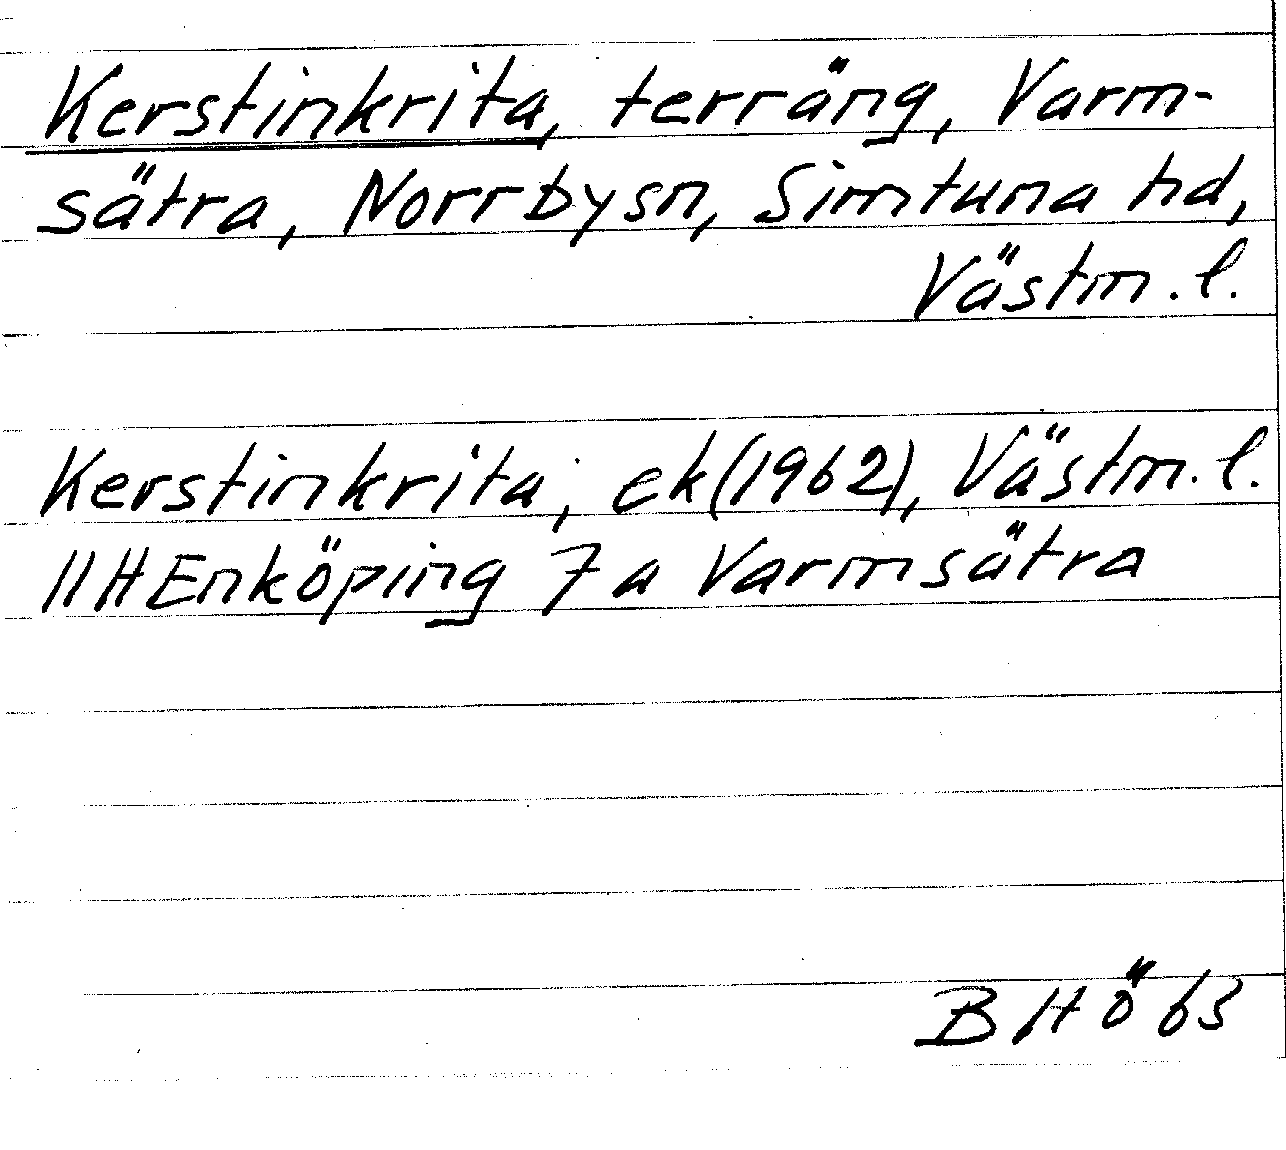 Kerstinkrita, terräng, Varm-
sätra, Norrbysn, Simtuna hd,
Västm. l.
Kerstinkrita, ek (1962), Västm. l.
11H Enköping 7a Varmsätra
B H Ö 63